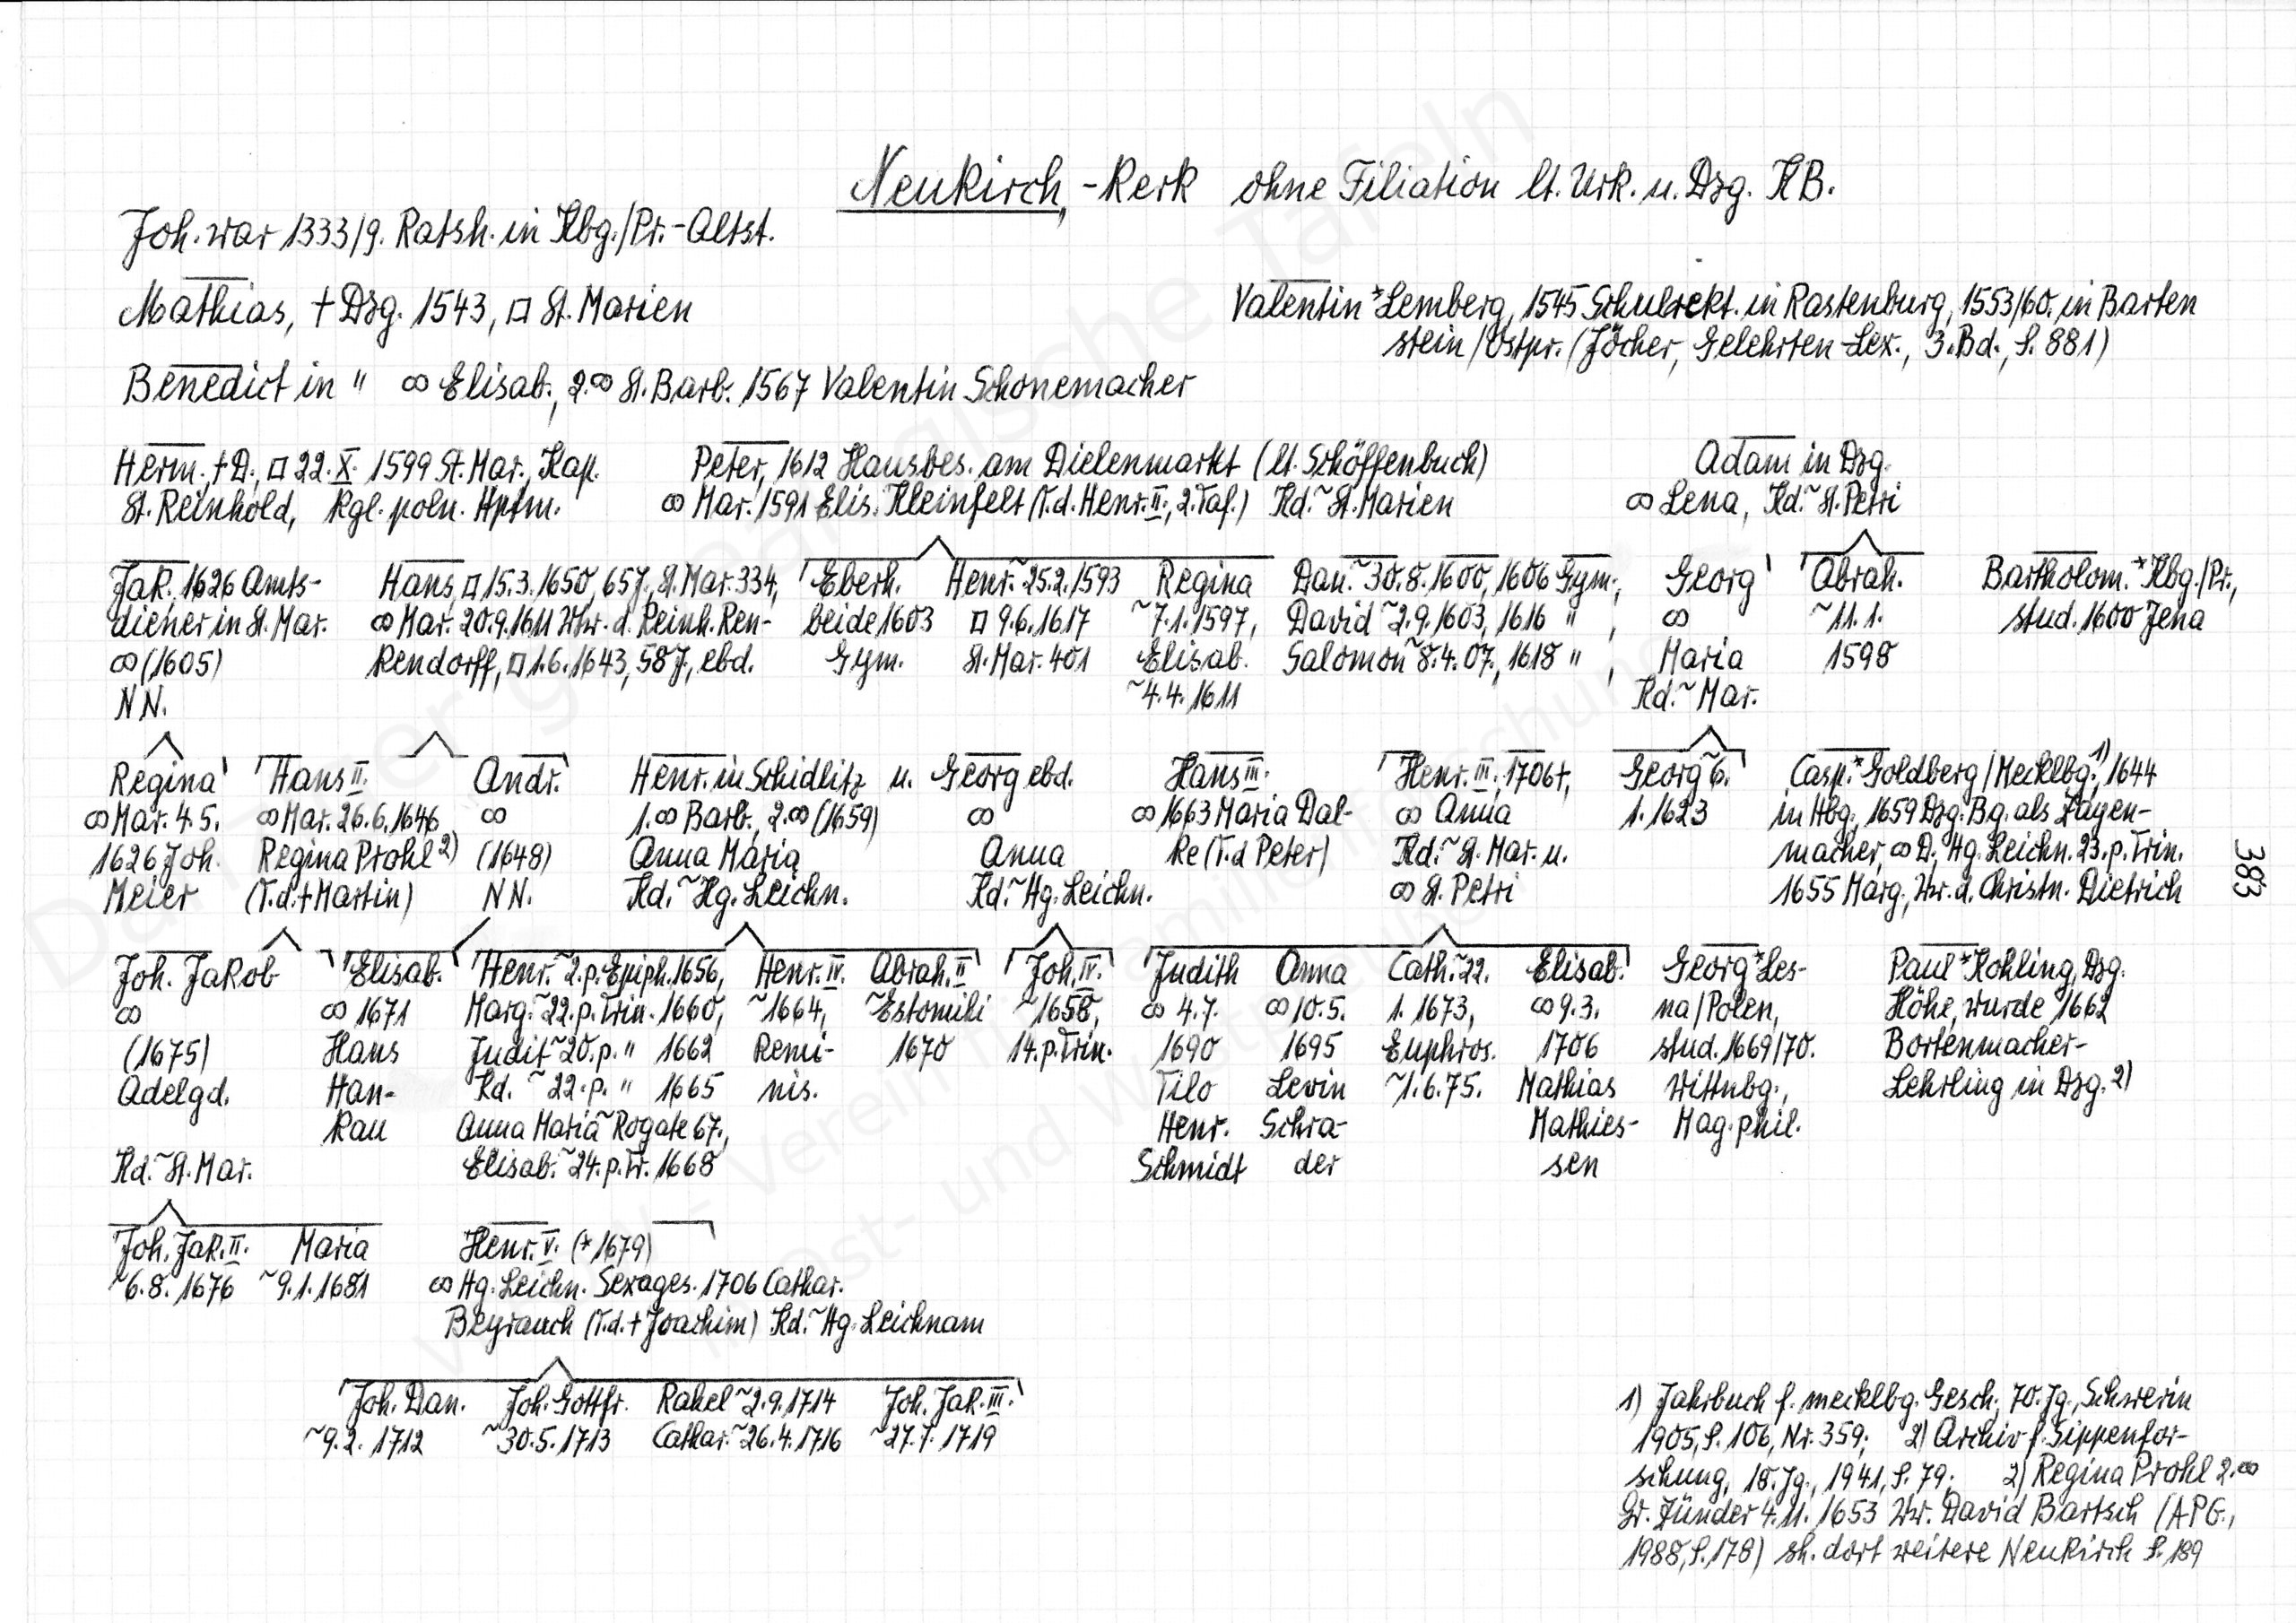 Neukirch, -kerk ohne Filiation lt. Urk. u. Dzg. KB.
Joh. war 1333/9. Ratsh. in Kbg./Pr.-Altst.
Mathias, † Dzg. 1543, □ St. Marien
Valentin *Lemberg, 1545 Schulrekt. in Rastenburg, 1553/60. in Barten
stein/Ostpr. (Jöcher, Gelehrten-Lex., 3. Bd., S. 881)
Benedict in " ∞ Elisab., 2.∞ St. Barb. 1567 Valentin Schonemacher
Herm. † D., □ 22. X. 1599 St. Mar., Kap.
St. Reinhold, Kgl. poln. Hptm.
Peter, 1612 Hausbes. am Dielenmarkt (lt. Schöffenbuch)
∞ Mar. 1591 Elis. Kleinfelt (T. d. Henr. II., 2. Taf.) Kd. ~ St. Marien
Adam in Dzg.
∞ Lena, Kd. ~ St. Petri
Jak., 1626 Amts-
diener in St. Mar.
∞ (1605)
NN.
Hans, □ 15.3.1650, 65 J., St. Mar. 334,
∞ Mar. 20.9.1611 Wwr. d. Reinh. Ren-
kendorff, □ 1.6.1643, 58 J., ebd.
Eberh.
beide 1603
Gym.
Henr. ~ 25.2.1593
□ 9.6.1617
St. Mar. 401
Regina
~ 7.1.1597,
Elisab.
~ 4.4.1611
Dan. ~ 30.8.1600, 1606 Gym.,
David ~ 2.9.1603, 1616 " ,
Salomon ~ 8.4.07., 1618 " ,
Georg
∞
Maria
Kd. ~ Mar.
Abrah.
~ 11.1.
1598
Bartholom. *Kbg./Pr.,
stud. 1600 Jena
Regina
∞ Mar. 4.5.
1626 Joh.
Meier
Hans II.
∞ Mar. 26.6.1646
Regina Prohl 2)
(T. d. † Martin)
Andr.
∞
(1648)
NN.
Henr. in Schidlitz u.
1.∞ Barb., 2.∞ (1659)
Anna Maria
Kd. ~ Hg. Leichn.
Georg ebd.
∞
Anna
Kd. ~ Hg. Leichn.
Hans III.
∞ 1663 Maria Dal-
ke (T. d. Peter)
Henr. III., 1706 †,
∞ Anna
Kd. ~ St. Mar. u.
∞ St. Petri
Georg ~ 6.
1. 1623
Casp. *Goldberg/Mecklbg. 1), 1644
in Hbg., 1659 Dzg. Bg. als Zagen-
macher, ∞ D., Hg. Leichn. 23. p. Trin.
1655 Marg., Wwr. d. Christn. Dietrich
383
Joh. Jakob
∞
(1675)
Adelgd.
Kd. ~ St. Mar.
Elisab.
∞ 1671
Hans
Han-
kau
Henr. ~ 2. p. Epiph. 1656,
Marg. ~ 22. p. Trin. 1660,
Judit ~ 20. p. " 1662
Kd. ~ 22. p. " 1665
Anna Maria ~ Rogate 67.,
Elisab. ~ 24. p. Tr. 1668
Henr. IV.
~ 1664,
Remi-
nis.
Abrah. II
~ Estomihi
1670
Joh. IV.
~ 1658,
14. p. Trin.
Judith
∞ 4.7.
1690
Tilo
Henr.
Schmidt
Anna
∞ 10.5.
1695
Levin
Schra-
der
Cath. ~ 22.
1. 1673,
Euphros.
~ 1.6.75.
Elisab.
∞ 9.3.
1706
Mathias
Mathies-
sen
Georg *Les-
na/Polen,
stud. 1669/70.
Wittnbg.,
Mag. phil.
Paul *Kohling, Dzg.
Höhe, wurde 1662
Bortenmacher-
Lehrling in Dzg. 2)
Joh. Jak. II.
~ 6.8.1676
Maria
~ 9.1.1681
Henr. V. (*1679)
∞ Hg. Leichn. Sexages. 1706 Cathar.
Beyrauch (T. d. † Joachim) Kd. ~ Hg. Leichnam
Joh. Dan.
~ 9.2.1712
Joh. Gottfr.
~ 30.5.1713
Rahel ~ 2.9.1714
Cathar. ~ 26.4.1716
Joh. Jak. III.
~ 27.7.1719
1) Jahrbuch f. mecklbg. Gesch., 70. Jg., Schwerin
1905, S. 106, Nr. 359; 2) Archiv f. Sippenfor-
schung, 18. Jg., 1941, S. 79; 2) Regina Prohl 2.∞
Gr. Zünder 4.11.1653 Wwr. David Bartsch (APG.,
1988, S. 178) sh. dort weitere Neukirch S. 189